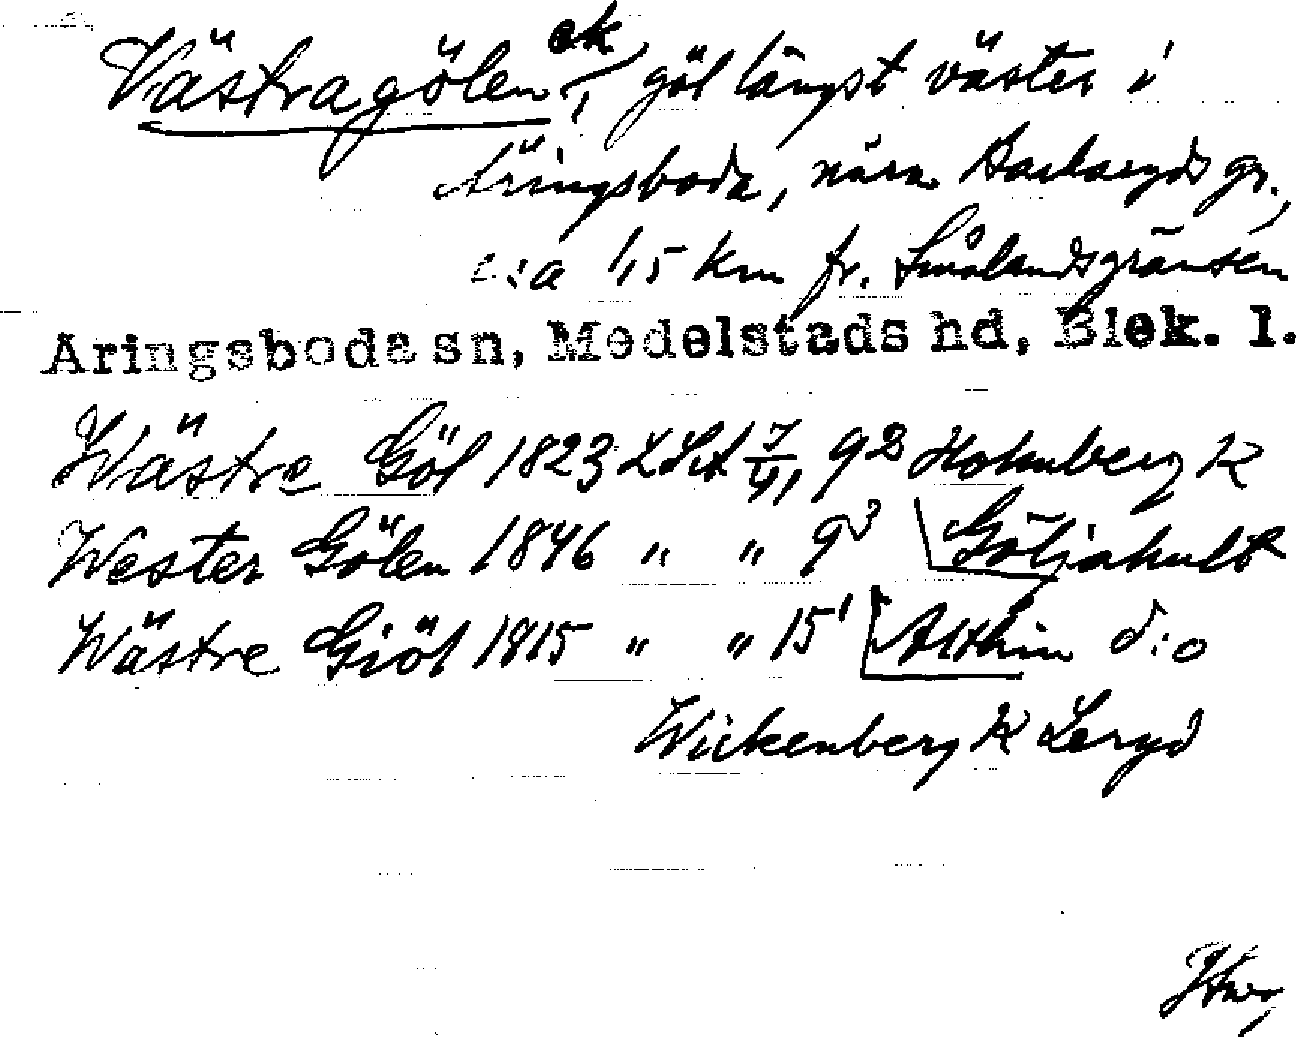 Västragölen ek, göl längst väster i
Äringsboda, nära Backaryds gr.,
c:a 1,5 km fr. Smålandsgränsen
Äringsboda sn, Medelstads hd, Blek. l.
Wästre Göl 1823 LSA 7/41, 9 2 Holmberg K
Wester Gölen 1846 " " 9 3 Göljahult
Wästre Giöl 1815 " " 15 1 Althin d:o
Wickenberg K Leryd